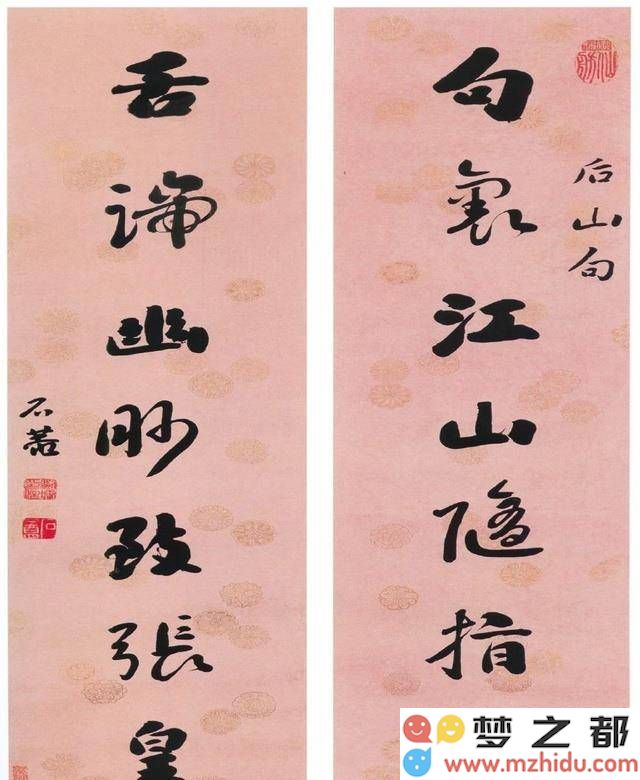 后山句
句裏江山隨指
舌端幽眇致張皇
石菴
梦之都
www.mzhidu.com